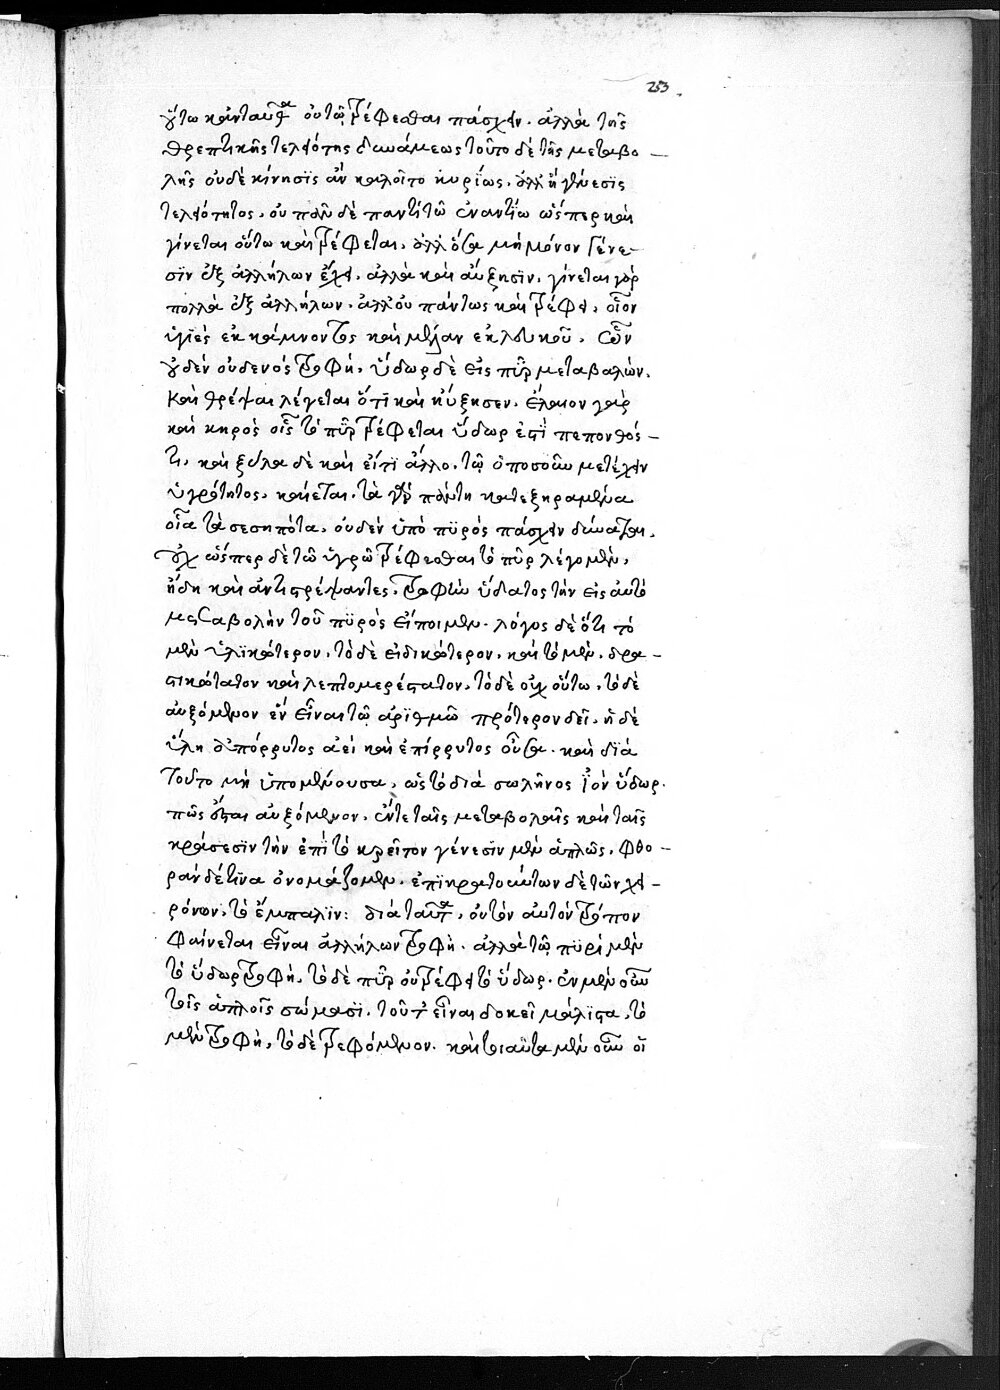 253
οὕτω κἀνταῦθα οὐ τῷ τρέφεσθαι πάσχειν. ἀλλὰ τῆς
θρεπτικῆς τελειότης δυνάμεως τοῦτο δὲ τῆς μεταβο
λῆς οὐδὲ κίνησϊς ἂν καλοῖτο κυρΐως, ἀλλ' ἢ γένεσϊς
τελειότητος. οὐ πᾶν δὲ παντὶ τῷ ἐναντίω ὥσπερ καὶ
γίνεται οὕτω καὶ τρέφεται. ἀλλ' ὅσα μὴ μόνον γένε
σϊν ἐξ ἀλλήλων ἔχει. ἀλλὰ καὶ αὔξησϊν. γίνεται γὰρ
πολλὰ ἐξ ἀλλήλων. ἀλλ' οὐ πάντως καὶ τρέφει, οἷον
ὑγιὲς ἐκ κάμνοντος καὶ μέλαν ἐκ λευκοῦ. ὧν
οὐδὲν οὐδενὸς τροφὴ, ὕδωρ δὲ εἰς πῦρ μεταβαλὼν.
καὶ θρέψαι λέγεται ὅτϊ καὶ ηὔξησεν. ἔλαιον γὰρ
καὶ κηρὸς οἷς τὸ πῦρ τρέφεται ὕδωρ ἐστὶ πεπονθός
τι. καὶ ξύλα δὲ καὶ εἴτϊ ἄλλο. τῷ ὁποσοῦν μετέχειν
ὑγρότητος. καίεται. τὰ γοῦν πάντη κατεξηραμμένα
οἷα τὰ σεσηπότα. οὐδὲν ὑπὸ πϋρὸς πάσχειν δύναται.
οὐχ ὥσπερ δὲ τῷ ὑγρῷ τρέφεσθαι τὸ πῦρ λέγομεν,
ἤδη καὶ ἀντιστρέψαντες. τροφὴν ὕδατος τὴν εἰς αὐτὸ
μεταβολὴν τοῦ πϋρὸς εἴποιμεν. λόγος δὲ ὅτι τὸ
μὲν ὑλϊκώτερον. τὸ δὲ εἰδικώτερον. καὶ τὸ μὲν. δρα
στικώτατον καὶ λεπτομερέστατον. τὸ δὲ οὐχ οὕτω. τὸ δὲ
αὐξόμενον ἓν εἶναι τῷ ἀρϊθμῷ πρότερον δεῖ. ἡ δὲ
ὕλη ἀπόρρυτος ἀεὶ καὶ ἐπίρρυτος οὖσα. καὶ διὰ
τοῦτο μὴ ὑπομένουσα. ὡς τὸ διὰ σωλῆνος ἰὸν ὕδωρ.
πῶς ἔσται αὐξόμενον. ἔν τε ταῖς μεταβολαῖς καὶ ταῖς
κράσεσϊν τὴν ἐπὶ τὸ κρεῖττον γένεσϊν μὲν ἁπλῶς. φθο
ρὰν δέ τϊνα ὀνομάζομεν. ἐπϊκρατούντων δὲ τῶν χει
ρόνων, τὸ ἔμπαλϊν: διὰ ταῦτα, οὐ τὸν αὐτὸν τρόπον
φαίνεται εἶναι ἀλλήλων τροφή. ἀλλὰ τῷ πϋρὶ μὲν
τὸ ὕδωρ τροφὴ. τὸ δὲ πῦρ οὐ τρέφει τὸ ὕδωρ. ἐν μὲν οὖν
τοῖς ἁπλοῖς σώμασϊ. τοῦτ' εἶναι δοκεῖ μάλϊστα. τὸ
μὲν τροφὴ, τὸ δὲ τρεφόμενον. καὶ τοιαῦτα μὲν οὖν οἱ